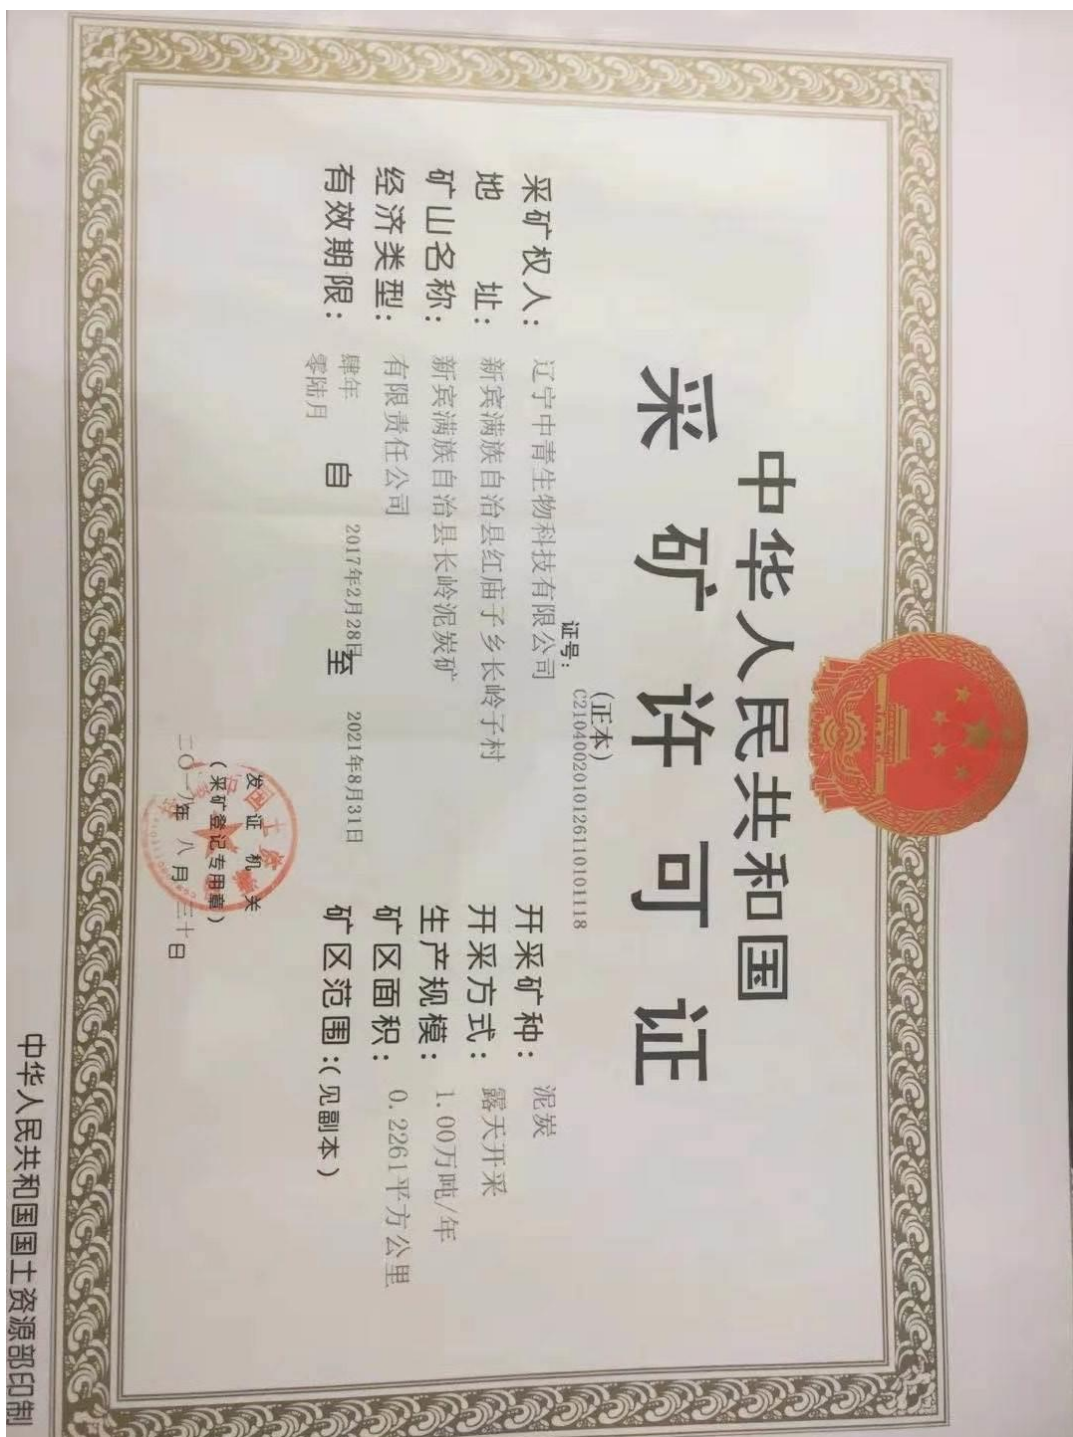 中华人民共和国
采矿许可证
(正本)
证号:
C2104002010126110101118
采矿权人: 辽宁中青生物科技有限公司
地 址: 新宾满族自治县红庙子乡长岭子村
矿山名称: 新宾满族自治县长岭泥炭矿
经济类型: 有限责任公司
有效期限: 肆年 零陆月 自 2017年2月28日 至 2021年8月31日
开采矿种: 泥炭
开采方式: 露天开采
生产规模: 1.00万吨/年
矿区面积: 0.2261平方公里
矿区范围:(见副本)
发证机关
(采矿登记专用章)
年八月三十日
中华人民共和国国土资源部印制